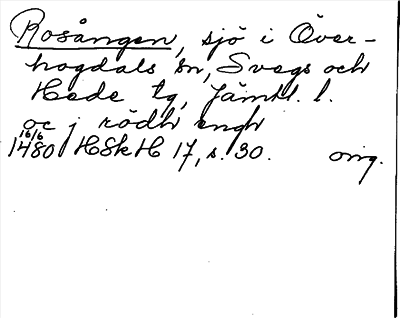 Rosången, sjö i Över-
hogdals sn, Svegs och
Hede tg, Jämtl. l.
oc j rödh engh
16/6 1480 HSkH 17, s. 30. orig.